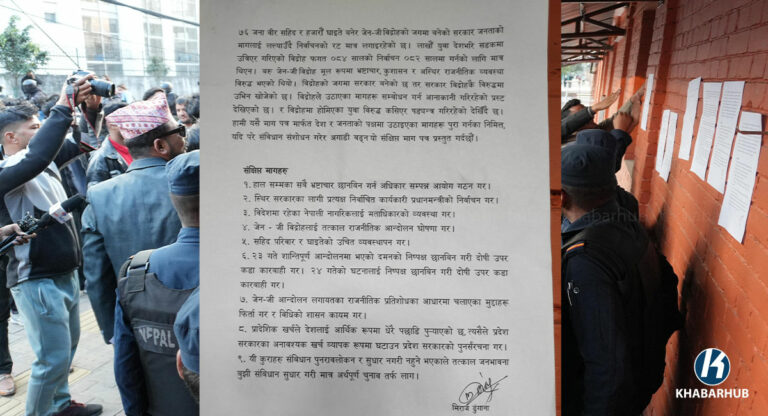 ७६ जना वीर सहिद र हजारौँ घाइते बनेर जेन-जी विद्रोहको जगमा बनेको सरकार जनताको
मागलाई लत्याउँदै निर्वाचनको रट मात्र लगाइरहेको छ। लाखौँ युवा देशभरि सडकमा
उत्रिएर गरिएको विद्रोह फगत ०८४ सालको निर्वाचन ०८२ सालमा गर्नको लागि मात्र
थिएन। बरु जेन-जी विद्रोह मूल रूपमा भ्रष्टाचार, कुशासन र अस्थिर राजनीतिक व्यवस्था
विरुद्ध भएको थियो। विद्रोहको जगमा सरकार बनेको छ तर सरकार विद्रोहकै विरुद्धमा
उभिन खोजेको छ। विद्रोहले उठाएका मागहरू सम्बोधन गर्न आनाकानी गरिरहेको प्रस्ट
देखिएको छ। र विद्रोहमा होमिएका युवा विरुद्ध कसिएर षड्यन्त्र गरिरहेको देखिँदै छ।
हामी यसै माग पत्र मार्फत देश र जनताको पक्षमा उठाइएका मागहरू पुरा गर्नका निमित्त,
यदि परे संविधान संशोधन गरेर अगाडी बढ्न यो संक्षिप्त माग पत्र प्रस्तुत गर्दछौँ।
संक्षिप्त मागहरू
१. हाल सम्मका सबै भ्रष्टाचार छानविन गर्न अधिकार सम्पन्न आयोग गठन गर।
२. स्थिर सरकारका लागी प्रत्यक्ष निर्वाचित कार्यकारी प्रधानमन्त्रीको निर्वाचन गर।
३. विदेशमा रहेका नेपाली नागरिकलाई मताधिकारको व्यवस्था गर।
४. जेन - जी विद्रोहलाई तत्काल राजनीतिक आन्दोलन घोषणा गर।
५. सहिद परिवार र घाइतेको उचित व्यवस्थापन गर।
६. २३ गते शान्तिपूर्ण आन्दोलनमा भएको दमनको निष्पक्ष छानविन गरी दोषी उपर
कडा कारवाही गर। २४ गतेको घटनालाई निष्पक्ष छानविन गरी दोषी उपर कडा
कारवाही गर।
७. जेन-जी आन्दोलन लगायतका राजनीतिक प्रतिशोधका आधारमा चलाएका मुद्दाहरू
फिर्ता गर र बिधिको शासन कायम गर।
८. प्रादेशिक खर्चले देशलाई आर्थिक रूपमा धेरै पछाडि पुऱ्याएको छ, त्यसैले प्रदेश
सरकारका अनावश्यक खर्च व्यापक रूपमा घटाउन प्रदेश सरकारको पुनर्संरचना गर।
९. यी कुराहरू संबिधान पुनरावलोकन र सुधार नगरी नहुने भएकाले तत्काल जनभावना
बुझी संबिधान सुधार गरी मात्र अर्थपूर्ण चुनाव तर्फ लाग।
मिराज ढुंगाना
NEPAL
Khabarhub
KHABARHUB